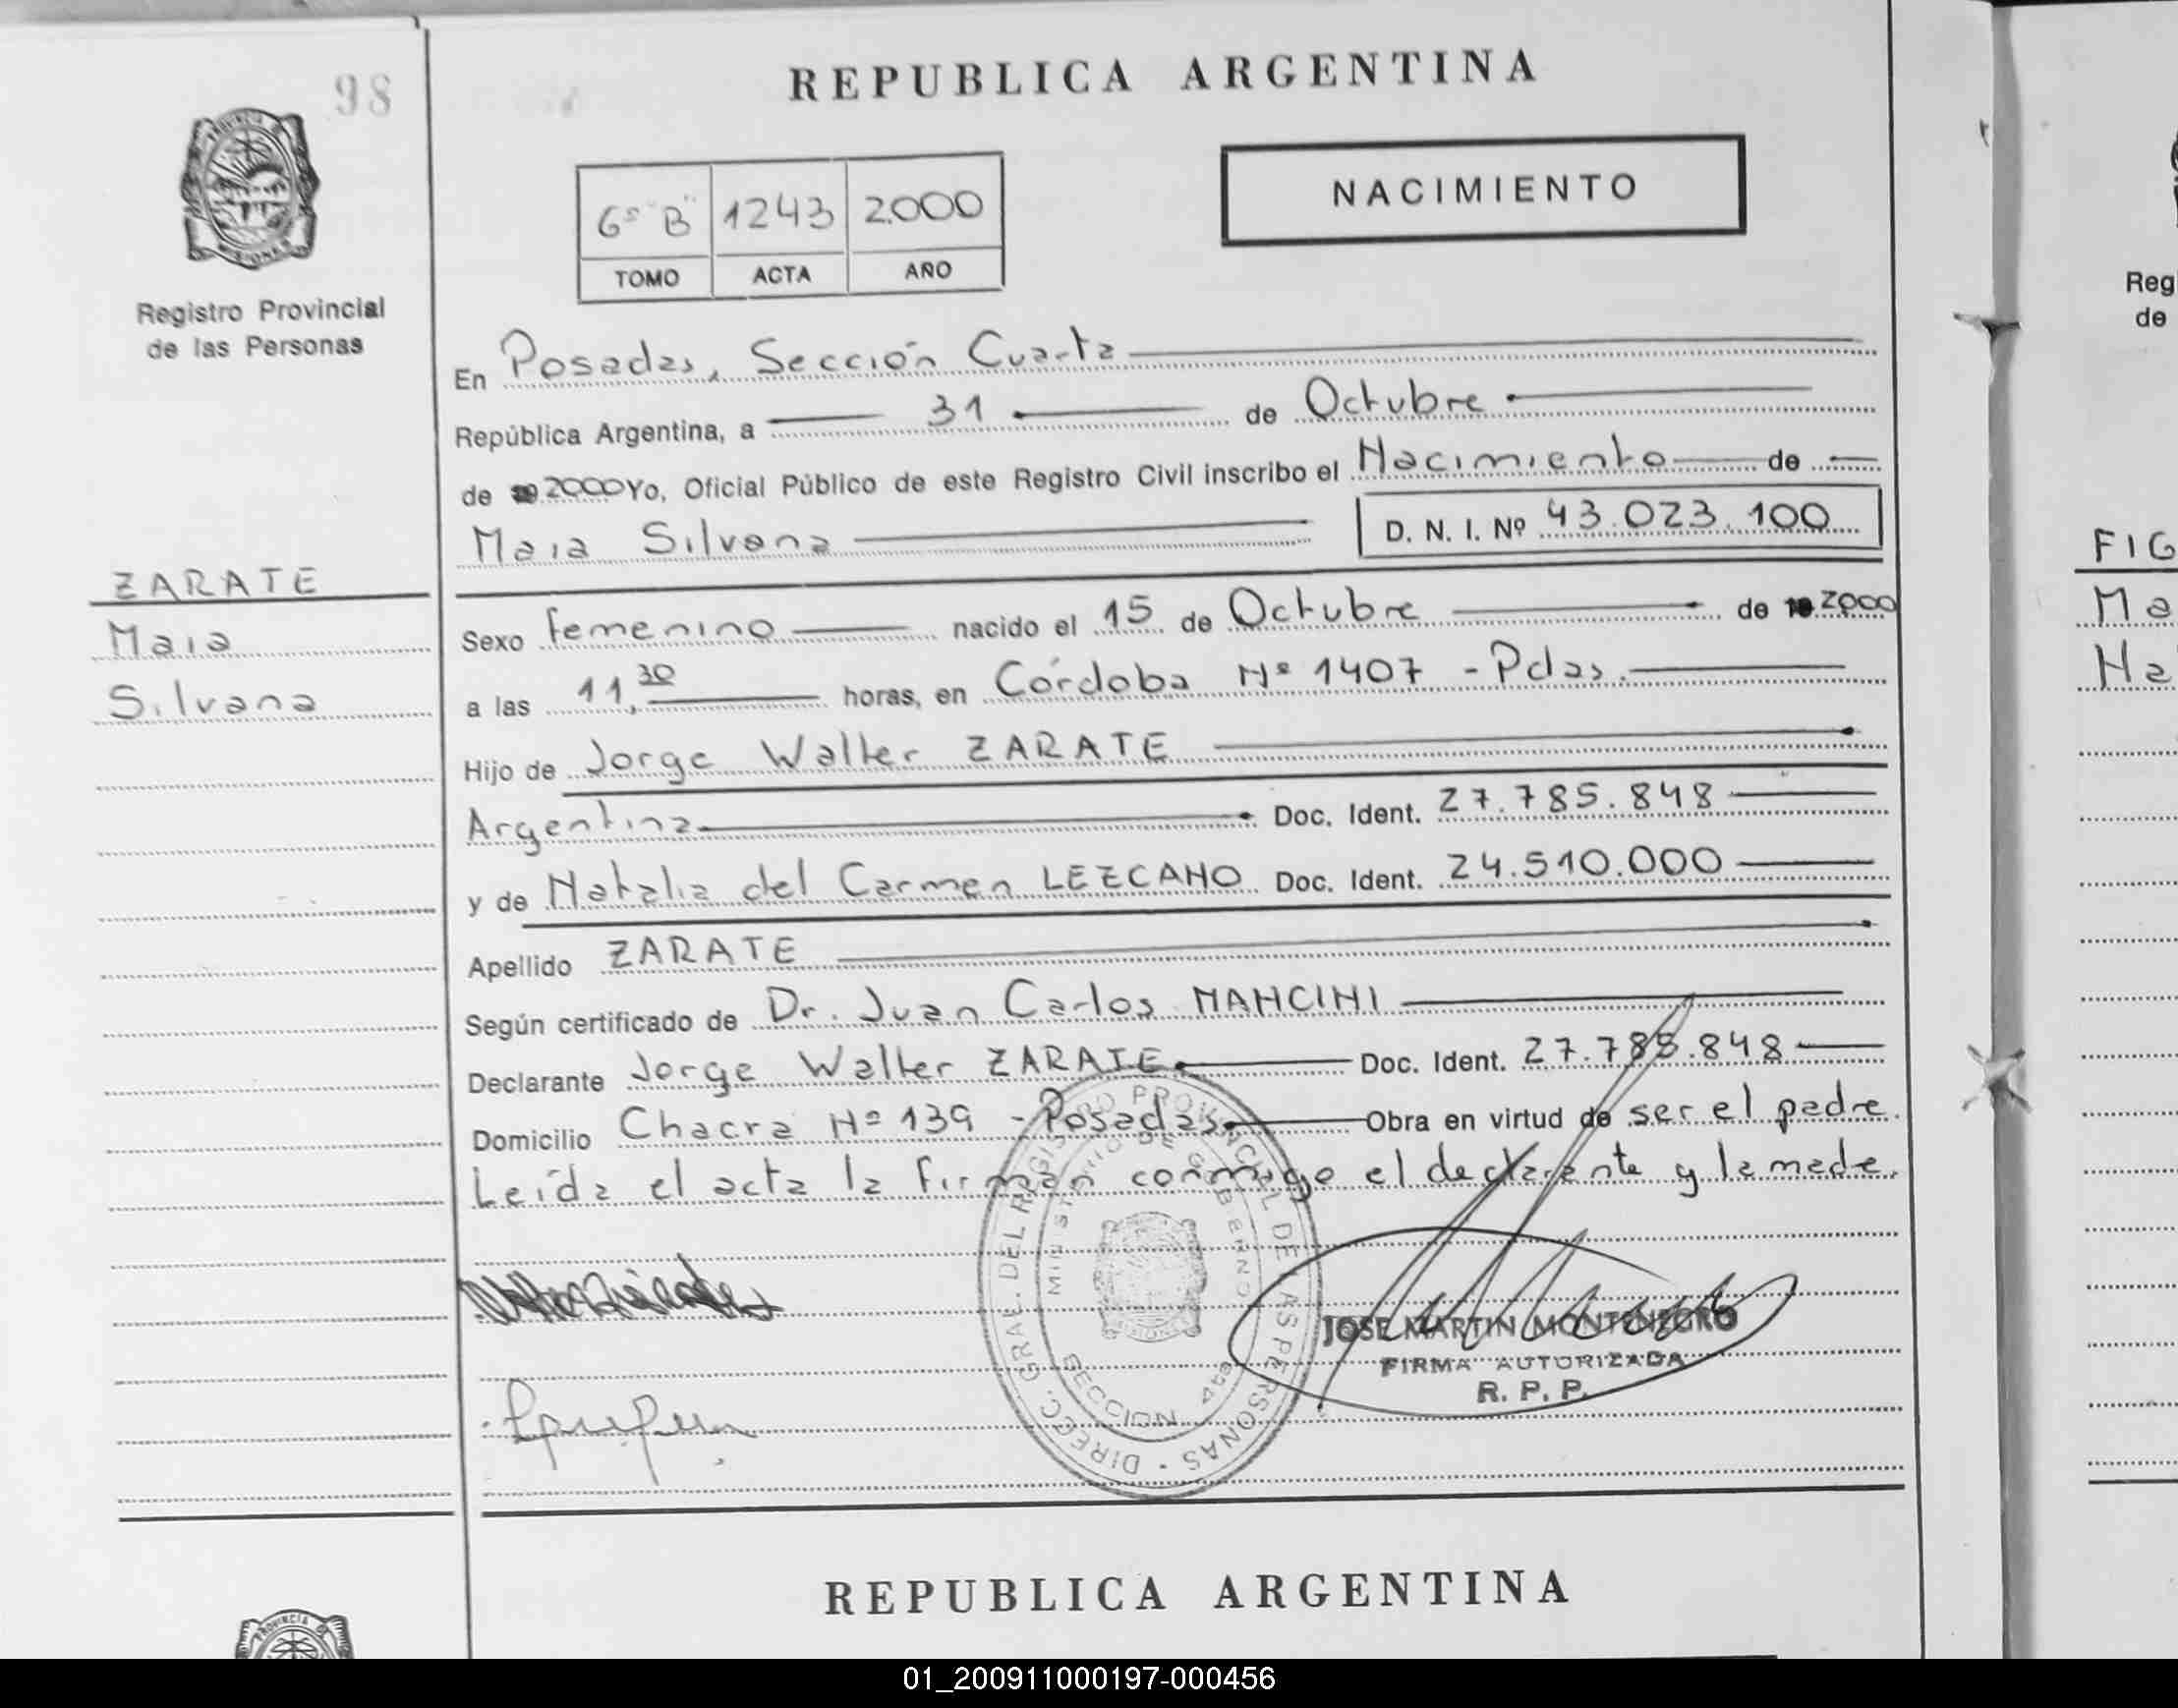 98
REPUBLICA ARGENTINA
NACIMIENTO
6º "B" 1243 2000
TOMO ACTA AÑO
Registro Provincial
de las Personas
En Posadas, Sección Cuarta
República Argentina, a 31 de Octubre
de 2000 Yo, Oficial Público de este Registro Civil inscribo el Nacimiento de
Maia Silvana D. N. I. Nº 43.023.100
ZARATE
Maia
Silvana
Sexo femenino nacido el 15 de Octubre de 2000
a las 11,30 horas, en Córdoba Nº 1407 - Pdas.
Hijo de Jorge Walter ZARATE
Argentina Doc. Ident. 27.785.848
y de Natalia del Carmen LEZCANO Doc. Ident. 24.510.000
Apellido ZARATE
Según certificado de Dr. Juan Carlos MANCINI
Declarante Jorge Walter ZARATE Doc. Ident. 27.785.848
Domicilio Chacra Nº 139 - Posadas Obra en virtud de ser el padre.
Leída el acta la firman conmigo el declarante y la madre.
DIRECC. GRAL. DEL REGISTRO PROVINCIAL DE LAS PERSONAS
MINISTERIO DE GOBIERNO
SECCION 4ta
JOSE MARTIN MONTENEGRO
FIRMA AUTORIZADA
R. P. P.
REPUBLICA ARGENTINA
PROVINCIA
Reg
de
FIG
Ma
Na
01_200911000197-000456